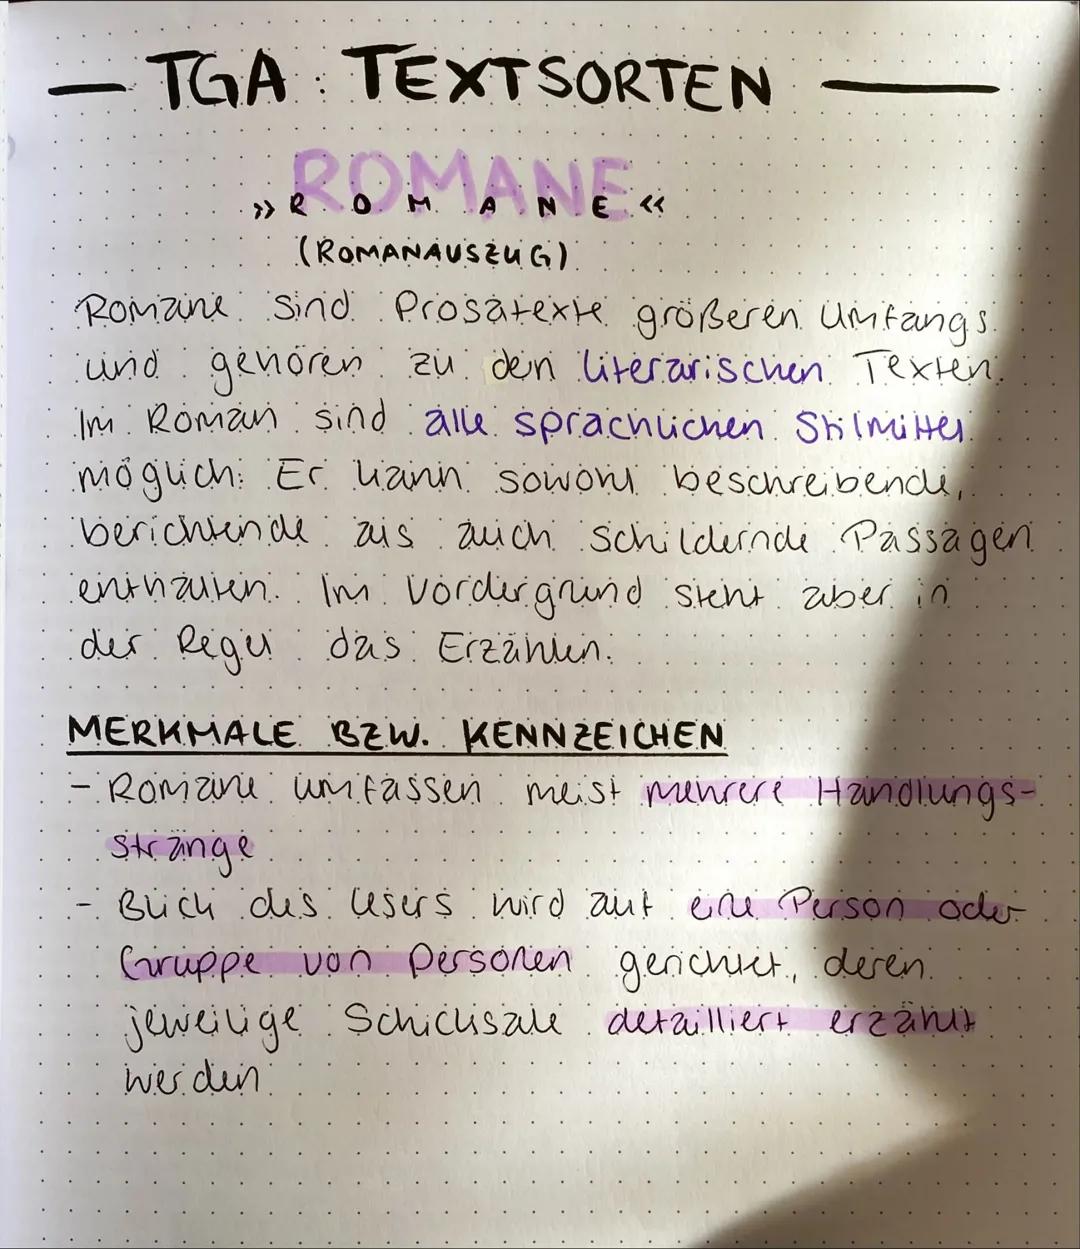 — TGA: TEXTSORTEN —
ROMANE
» R O M A N E «
(ROMANAUSZUG)
Romane sind Prosatexte größeren Umfangs
und gehören zu den literarischen Texten.
Im Roman sind alle sprachlichen Stilmittel
möglich: Er kann sowohl beschreibende,
berichtende als auch schildernde Passagen
enthalten. Im Vordergrund steht aber in
der Regel das Erzählen.
MERKMALE BZW. KENNZEICHEN
- Romane umfassen meist mehrere Handlungs-
stränge
- Blick des Lesers wird auf eine Person oder
Gruppe von Personen gerichtet, deren
jeweilige Schicksale detailliert erzählt
werden